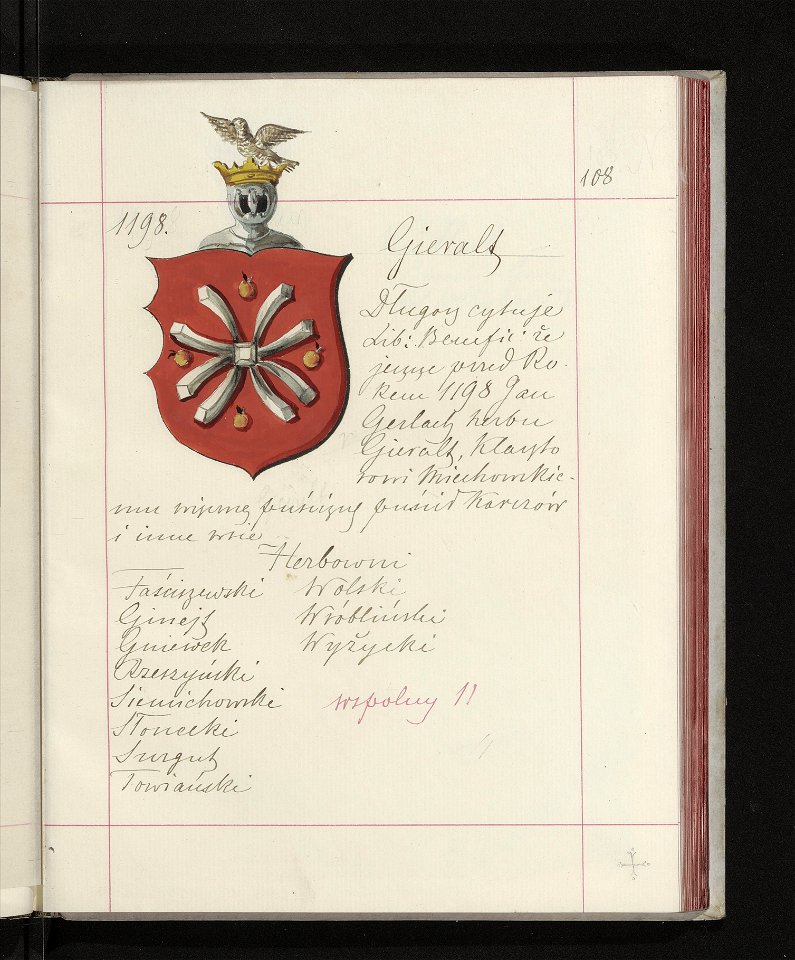 108
1198.
Gieralt
Długosz cytuje
Lib: Benefi: że
jeszcze przed Ro-
kiem 1198 Jan
Gerlach herbu
Gieralt, Klaszto
rowi Miechowskie-
mu
i inne wsie
Herbowni
Faściszewski
Ginejt
Gniewek
Rzeszyński
Siemichowski
Słonecki
Surgut
Towiański
Wolski
Wróbliński
Wyżycki
wspolny 11